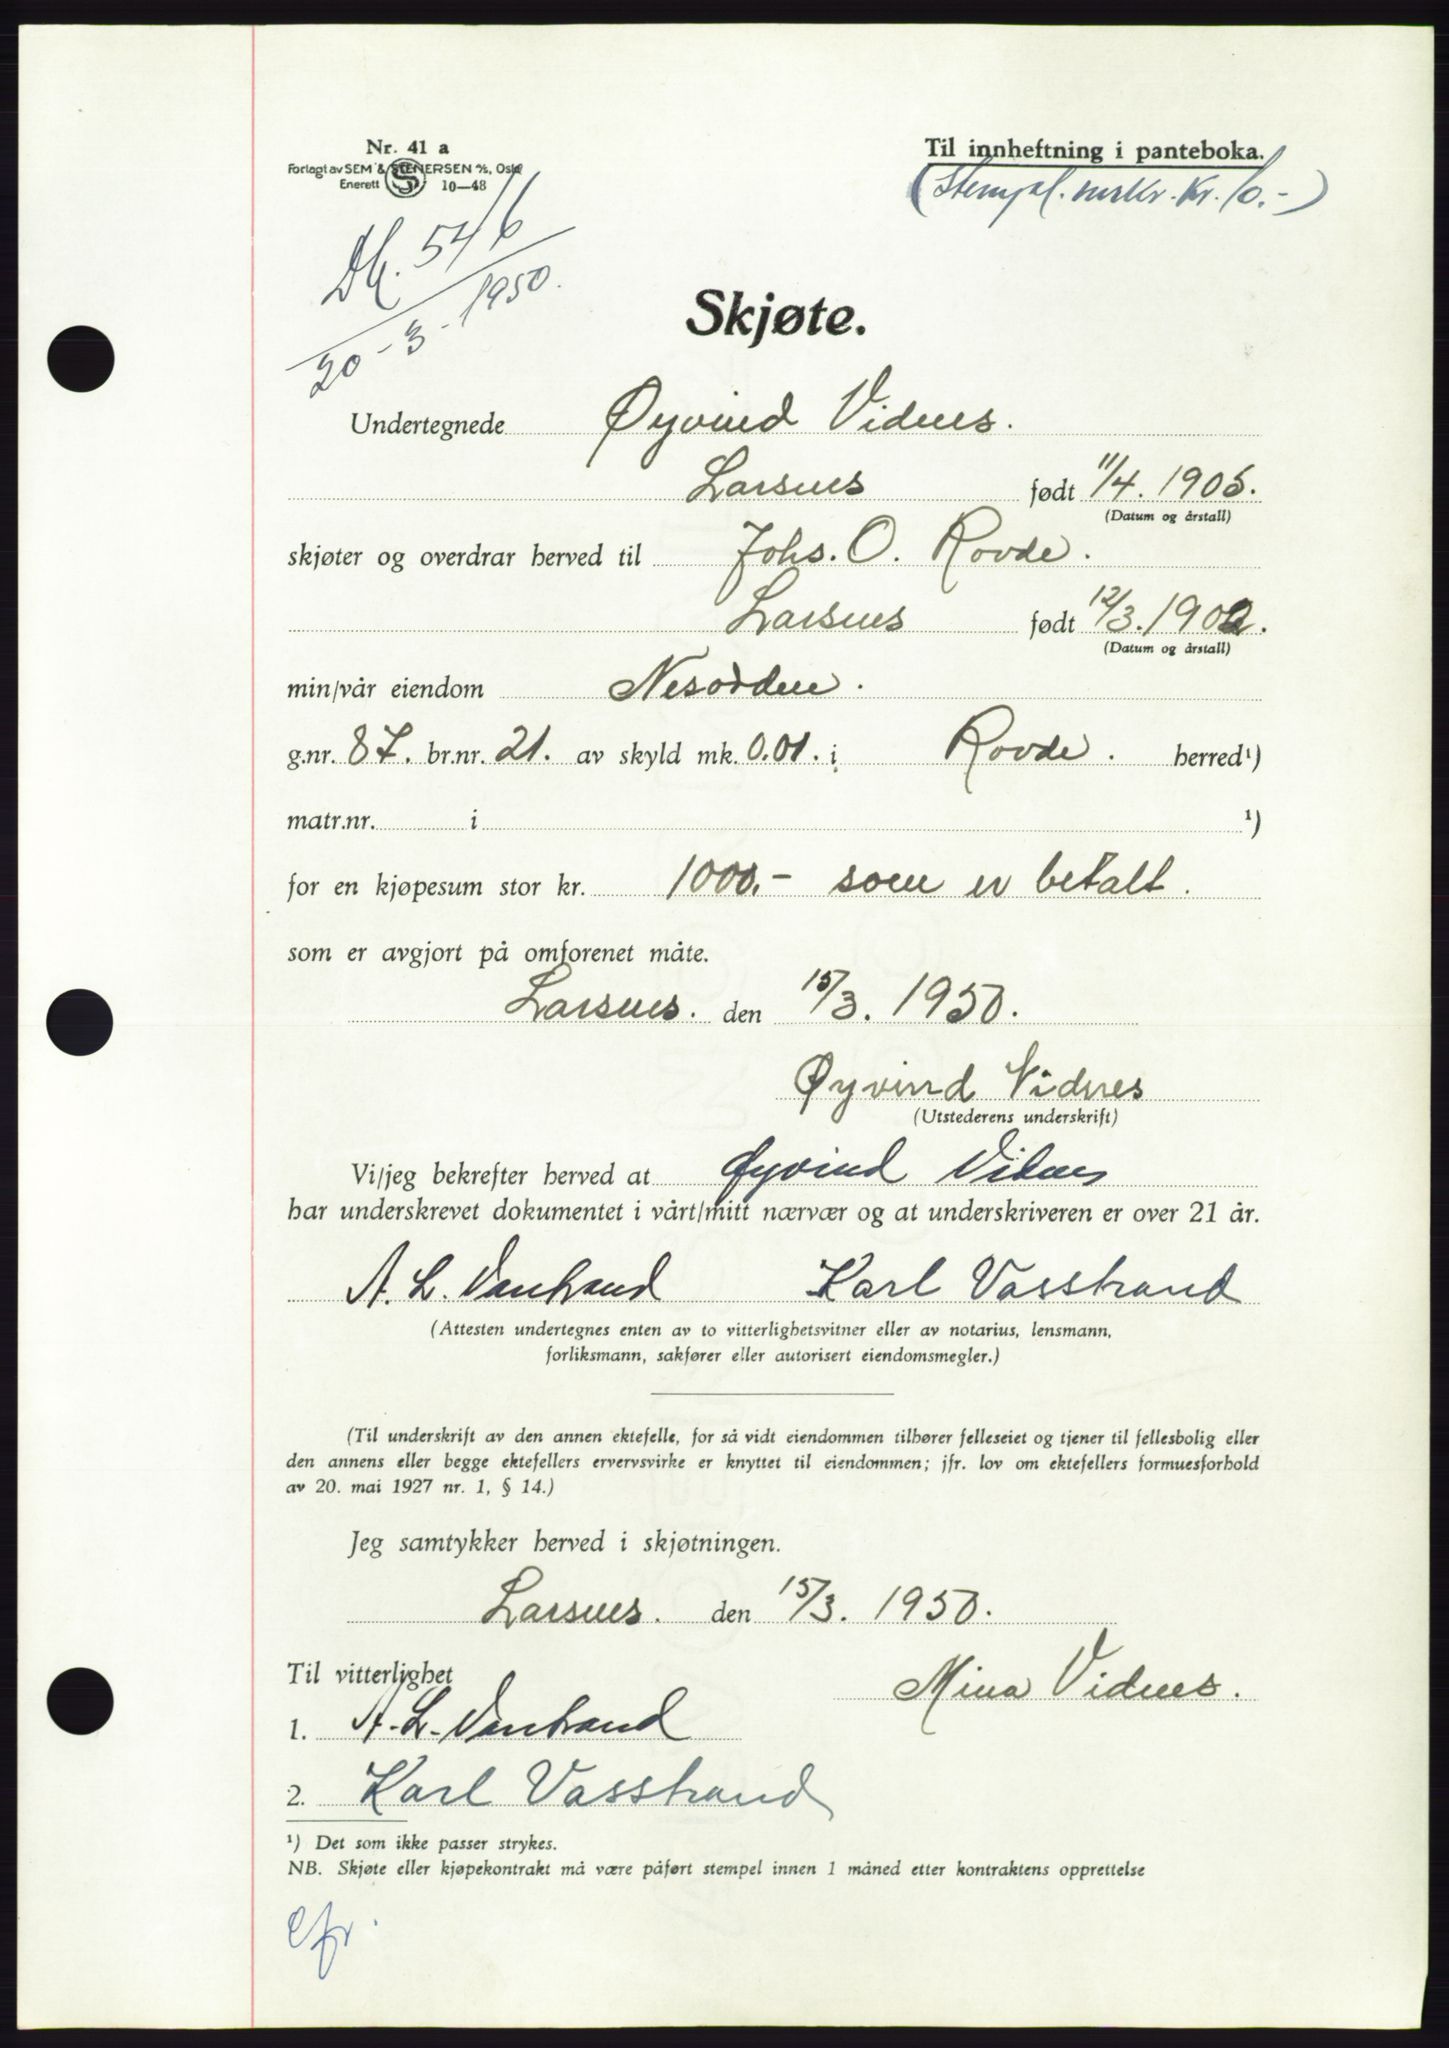 Nr. 41 a
Forlagt av SEM & STENERSEN A/S, Oslo
Enerett S 10—48
Til innheftning i panteboka.
(Stempl. merkr. Kr. 10.-)
Dk. 546
20-3-1950.
Skjøte.
Undertegnede Øyvind Vidnes.
Larsnes født 11/4. 1905.
(Datum og årstall)
skjøter og overdrar herved til Johs. O. Rovde.
Larsnes født 12/3. 1902.
(Datum og årstall)
min/vår eiendom Nesodden.
g.nr. 87. br.nr. 21. av skyld mk. 0.01. i Rovde. herred¹)
matr.nr. i ¹)
for en kjøpesum stor kr. 1000.- som er betalt.
som er avgjort på omforenet måte.
Larsnes. den 15/3. 1950.
Øyvind Vidnes
(Utstederens underskrift)
Vi/jeg bekrefter herved at Øyvind Vidnes
har underskrevet dokumentet i vårt/mitt nærvær og at underskriveren er over 21 år.
A. L. Vasstrand Karl Vasstrand
(Attesten undertegnes enten av to vitterlighetsvitner eller av notarius, lensmann,
forliksmann, sakfører eller autorisert eiendomsmegler.)
(Til underskrift av den annen ektefelle, for så vidt eiendommen tilhører felleseiet og tjener til fellesbolig eller
den annens eller begge ektefellers ervervsvirke er knyttet til eiendommen; jfr. lov om ektefellers formuesforhold
av 20. mai 1927 nr. 1, § 14.)
Jeg samtykker herved i skjøtningen.
Larsnes. den 15/3. 1950.
Til vitterlighet Mina Vidnes.
1. A. L. Vasstrand
2. Karl Vasstrand
¹) Det som ikke passer strykes.
NB. Skjøte eller kjøpekontrakt må være påført stempel innen 1 måned etter kontraktens opprettelse